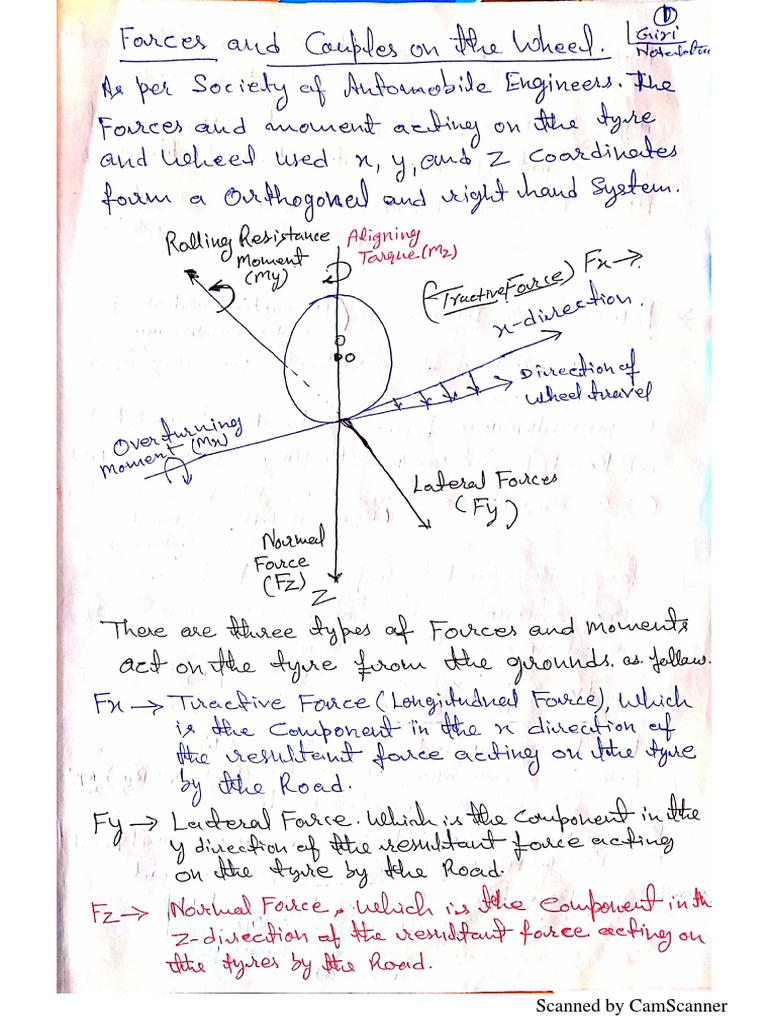 ①
Giri
Forces and Couples on the Wheel.
As per Society of Automobile Engineers. The
Forces and moment acting on the tyre
and wheel used x, y, and z coordinates
form a Orthogonal and right hand System.
Rolling Resistance
Moment
(My)
Aligning
Torque (Mz)
(Tractive Force) Fx →
x-direction.
O
Direction of
wheel travel
Overturning
moment (Mx)
Lateral Forces
(Fy)
Normal
Force
(Fz)
Z
There are three types of Forces and moments
act on the tyre from the grounds. as follow.
Fx → Tractive Force (Longitudnal Force), which
is the component in the x direction of
the resultant force acting on the tyre
by the Road.
Fy → Lateral Force. Which is the component in the
y direction of the resultant force acting
on the tyre by the Road.
Fz → Normal Force, which is the component in th
z-direction of the resultant force acting on
the tyres by the Road.
Scanned by CamScanner